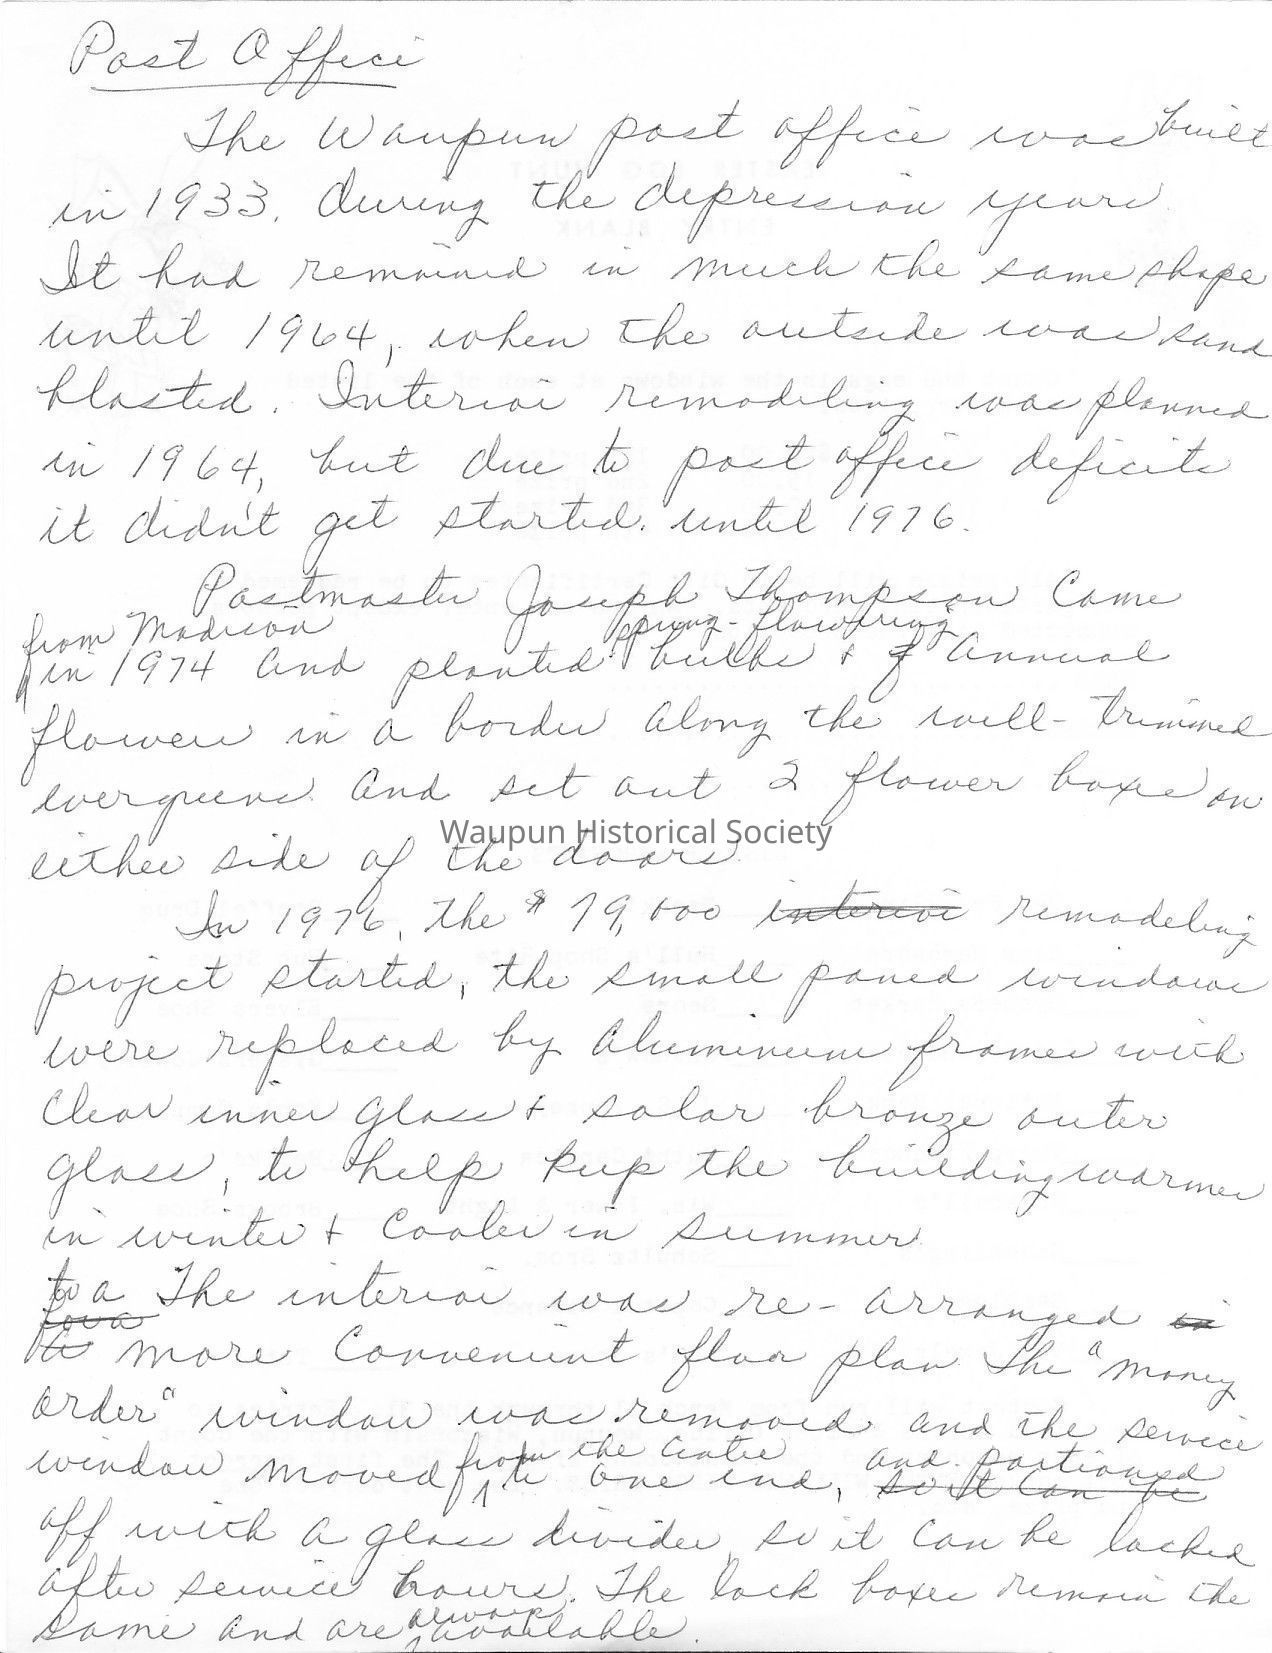 Post Office
The Waupun post office was built
in 1933. during the depression years.
It had remained in much the same shape
until 1964, when the outside was sand
blasted. Interior remodeling was planned
in 1964, but due to post office deficits
it didn't get started. until 1976.
Postmaster Joseph Thompson came
from Madison spring-flowering
in 1974 and planted bulbs & f annual
flowers in a border along the well-trimmed
evergreens and set out 2 flower boxes on
Waupun Historical Society
either side of the doors.
In 1976, the $79,000 interior remodeling
project started, the small paned windows
were replaced by aluminum frames with
clear inner glass & solar bronze outer
glass, to help keep the building warmer
in winter & cooler in summer.
to a The interior was re-arranged in
for a
a more convenient floor plan The "money
order" window was removed and the service
from the center and partioned
window moved to one end, so it can be
off with a glass divider, so it can be locked
after service hours. The lock boxes remain the
always
same and are available.